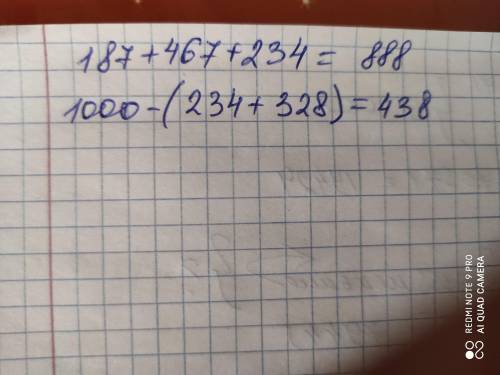 187+467+234= 888
1000-(234+328)=438
REDMI NOTE 9 PRO
AI QUAD CAMERA